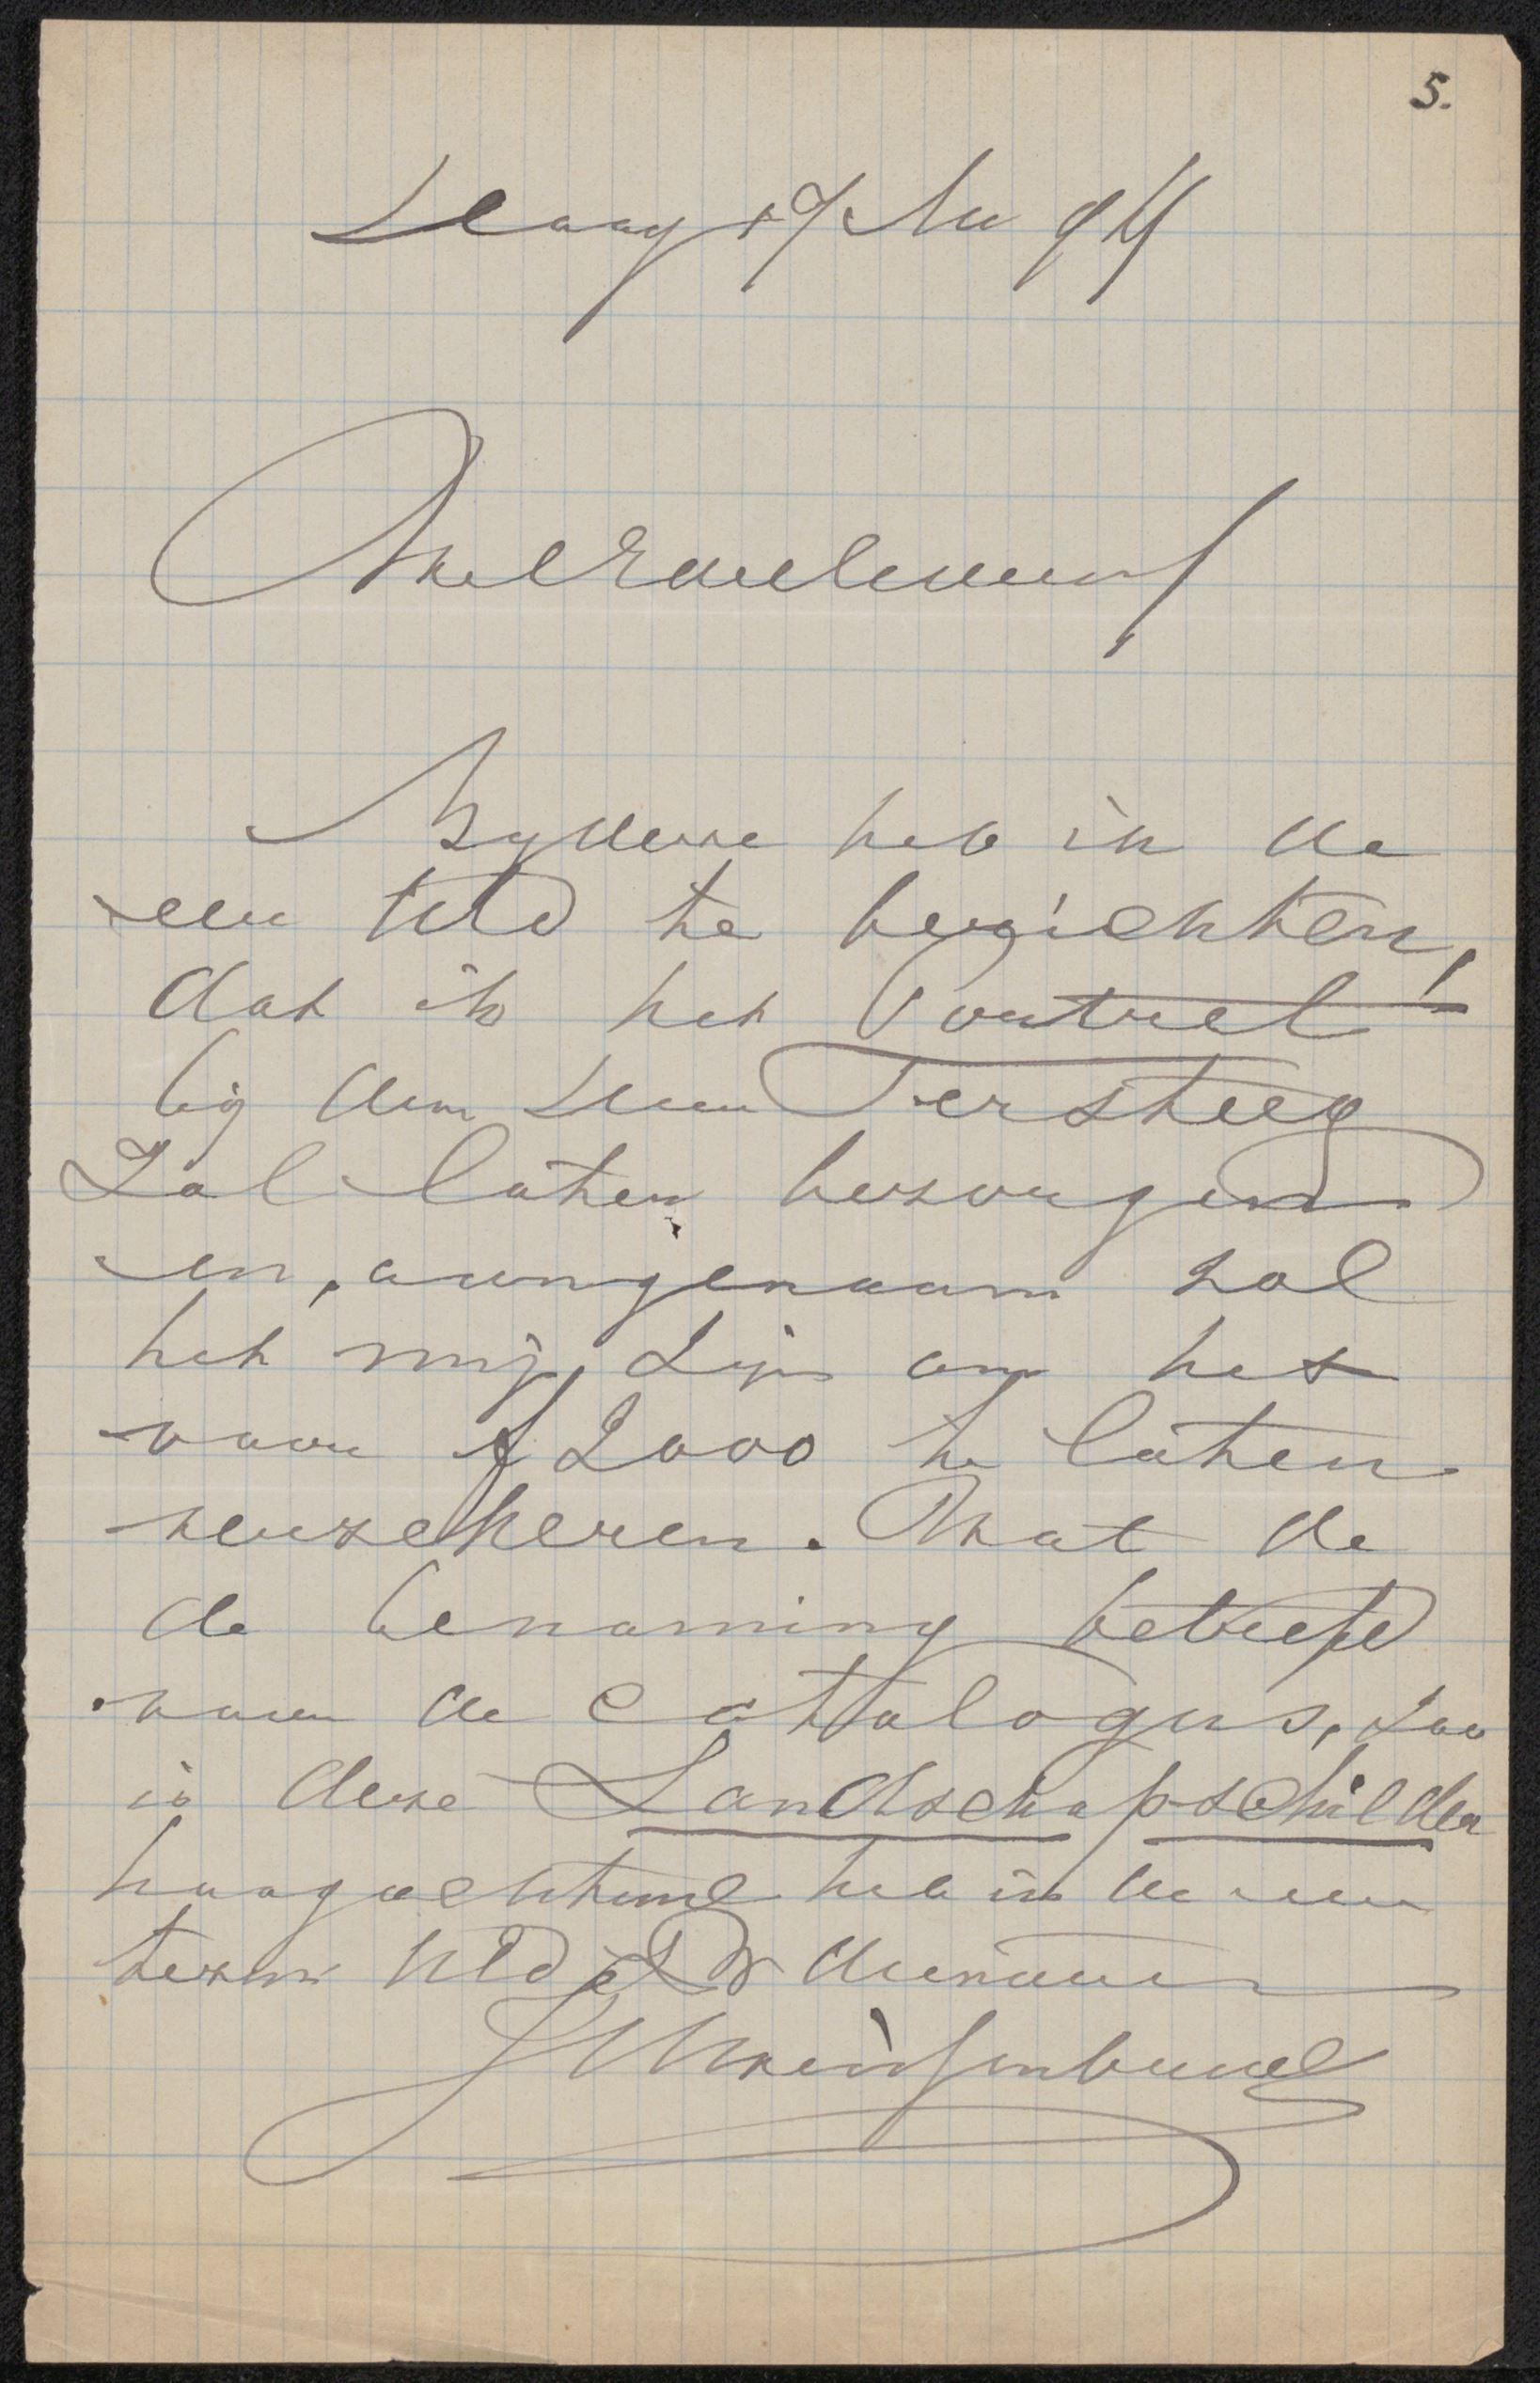 5.
Haag 17 Nov 94
WelEdelheer,
By deze heb ik de
eer UEd te berichten,
dat ik het Portret
bij den Heer Tersteeg
Zal laten bezorgen
en, aangenaam zal
het mij zijn om het
voor f 2000 te laten
verzekeren. Wat de
de benaming betreft
voor de Cattalogus, zoo
is deze Landschapschilder
hoogachtend heb ik de eer
te zijn UEd Dr dienaar
JWeissenbruch